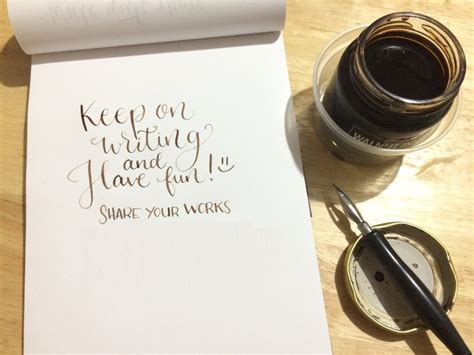 Keep on
writing
and
Have fun!
SHARE YOUR WORKS